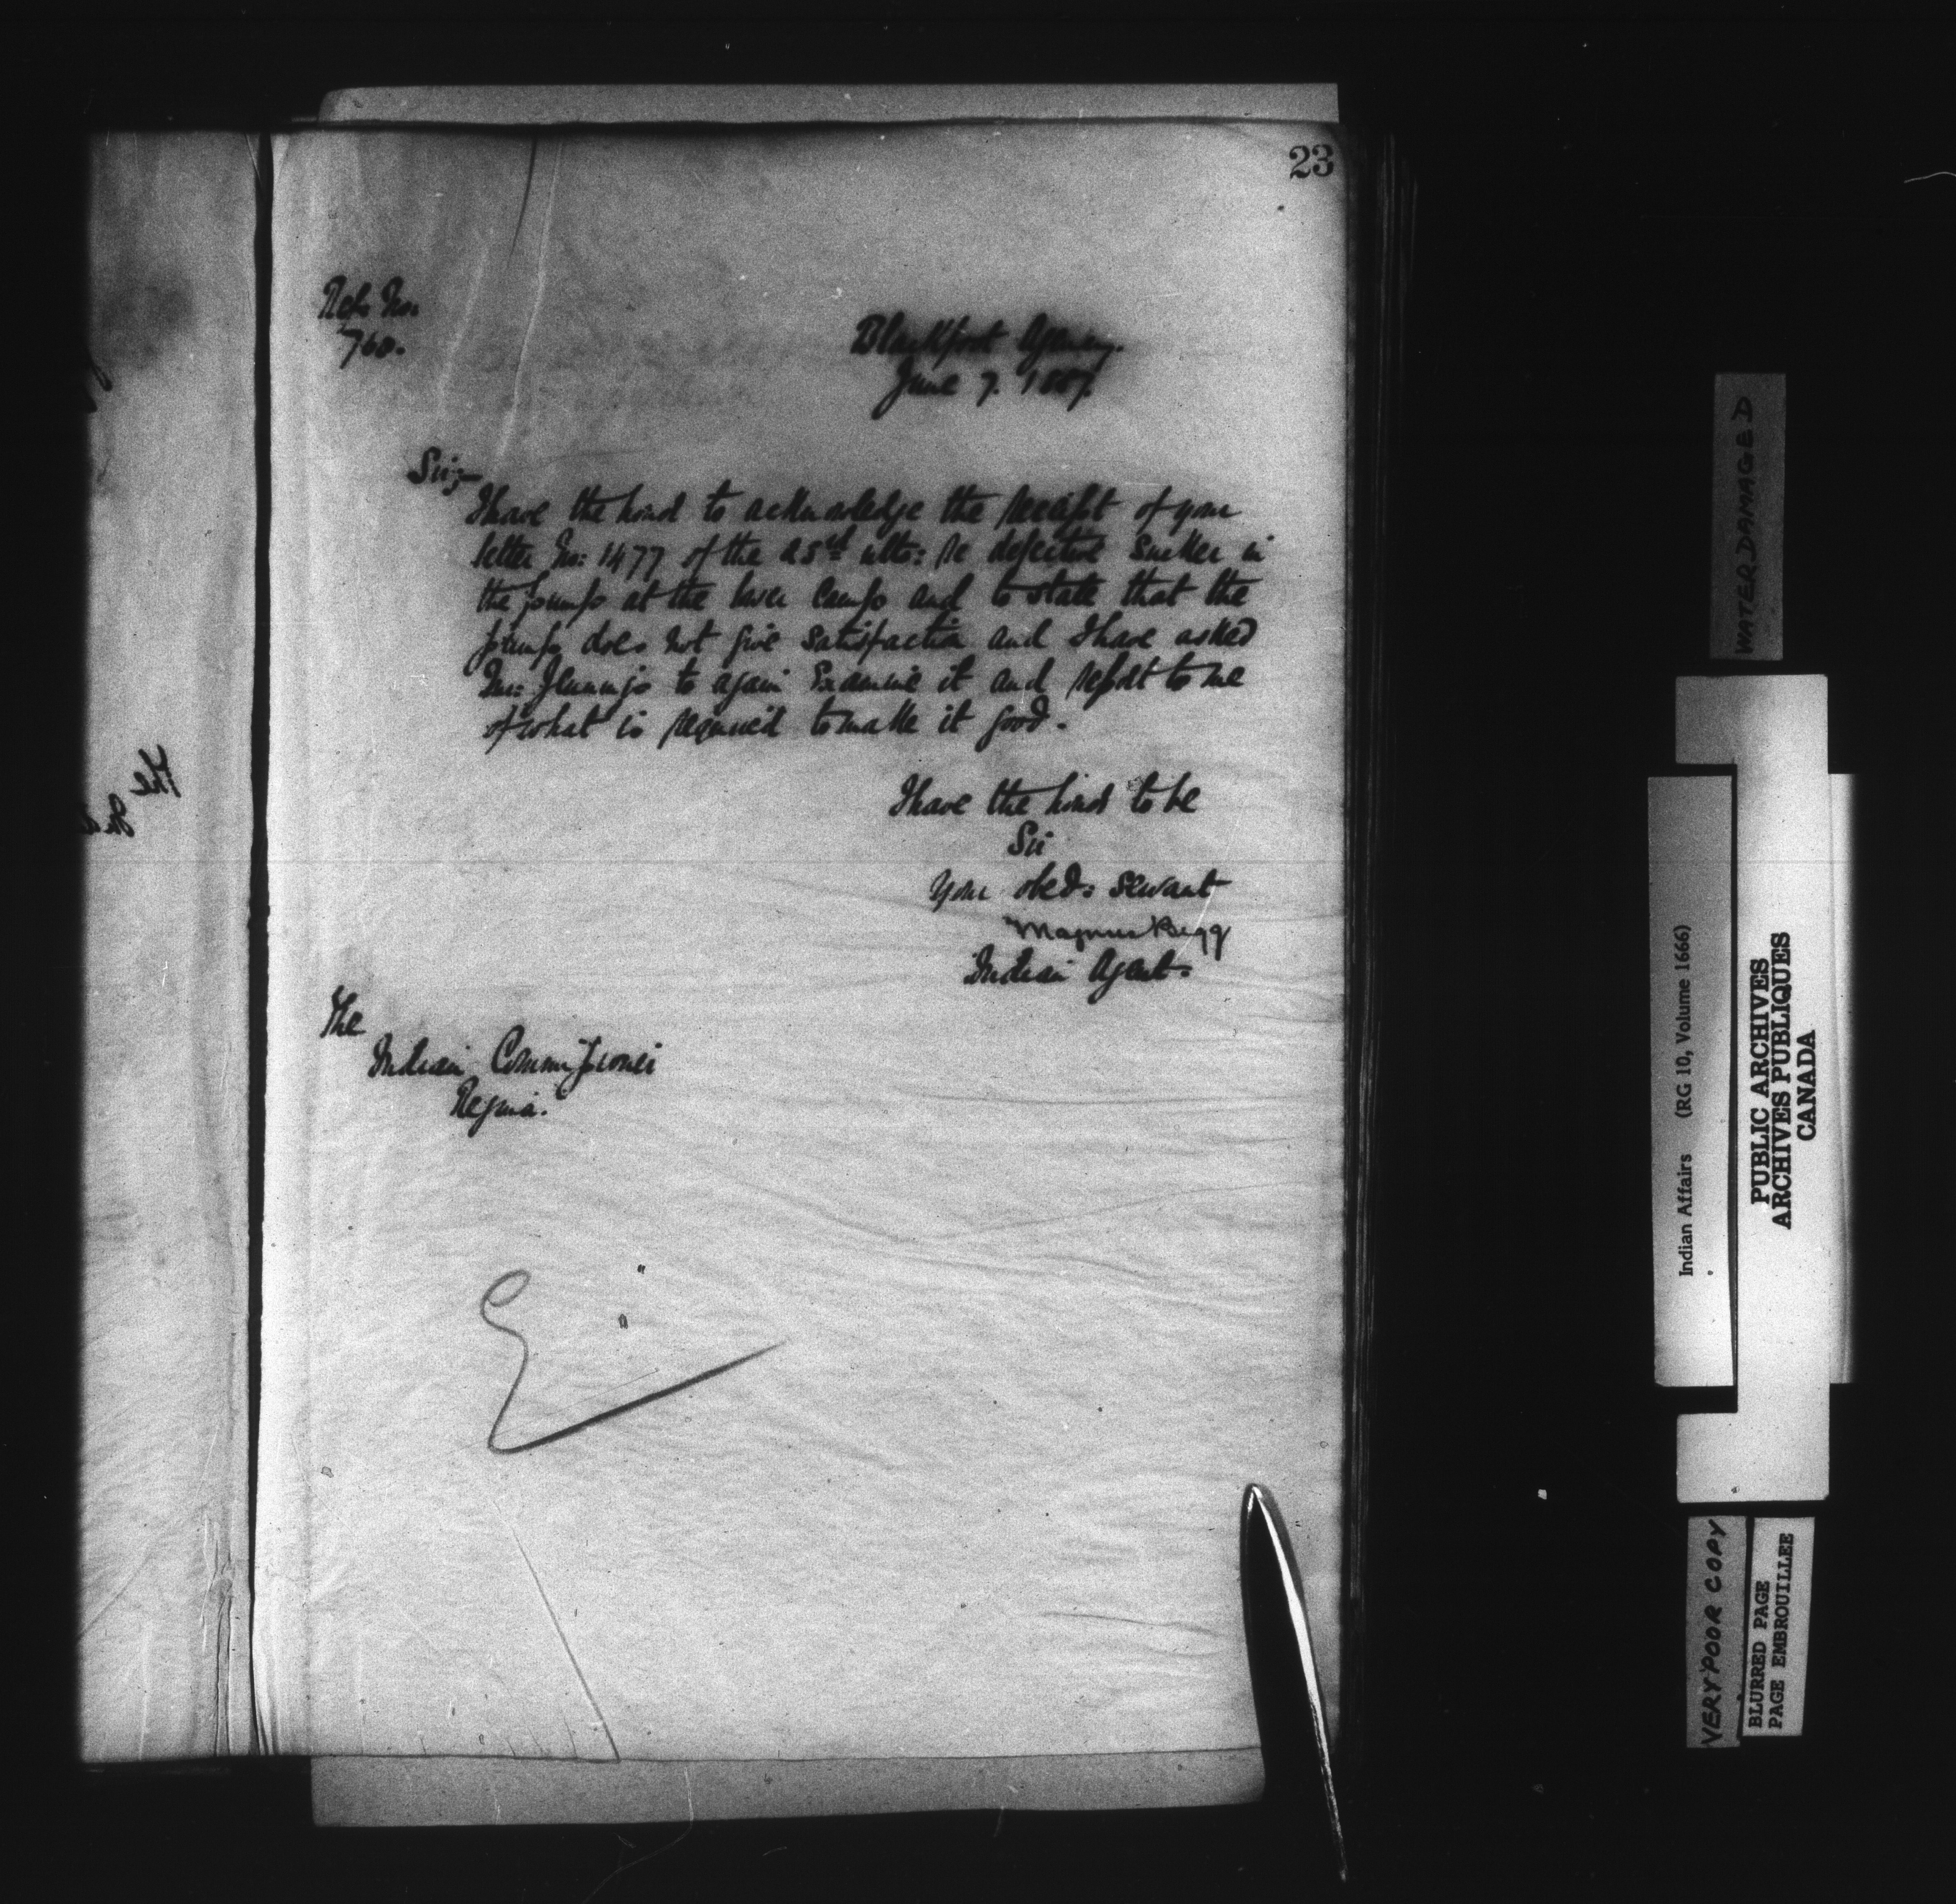 23
Refs No.
760.
Blackfoot Agency.
June 7. 1887.
Sir;-
I have the honor to acknowledge the receipt of your
letter No: 1477 of the 25th ulto: re defective sucker in
the pump at the lower Camp and to state that the
pump does not give satisfaction and I have asked
Mr: Jennings to again Examine it and report to me
of what is required to make it good.
I have the honor to be
Sir
Your obed: servant
Magnus Begg
Indian Agent.
The
Indian Commissioner
Regina.
The
WATER DAMAGED
Indian Affairs (RG 10, Volume 1666)
PUBLIC ARCHIVES
ARCHIVES PUBLIQUES
CANADA
VERY POOR COPY
BLURRED PAGE
PAGE EMBROUILLEE